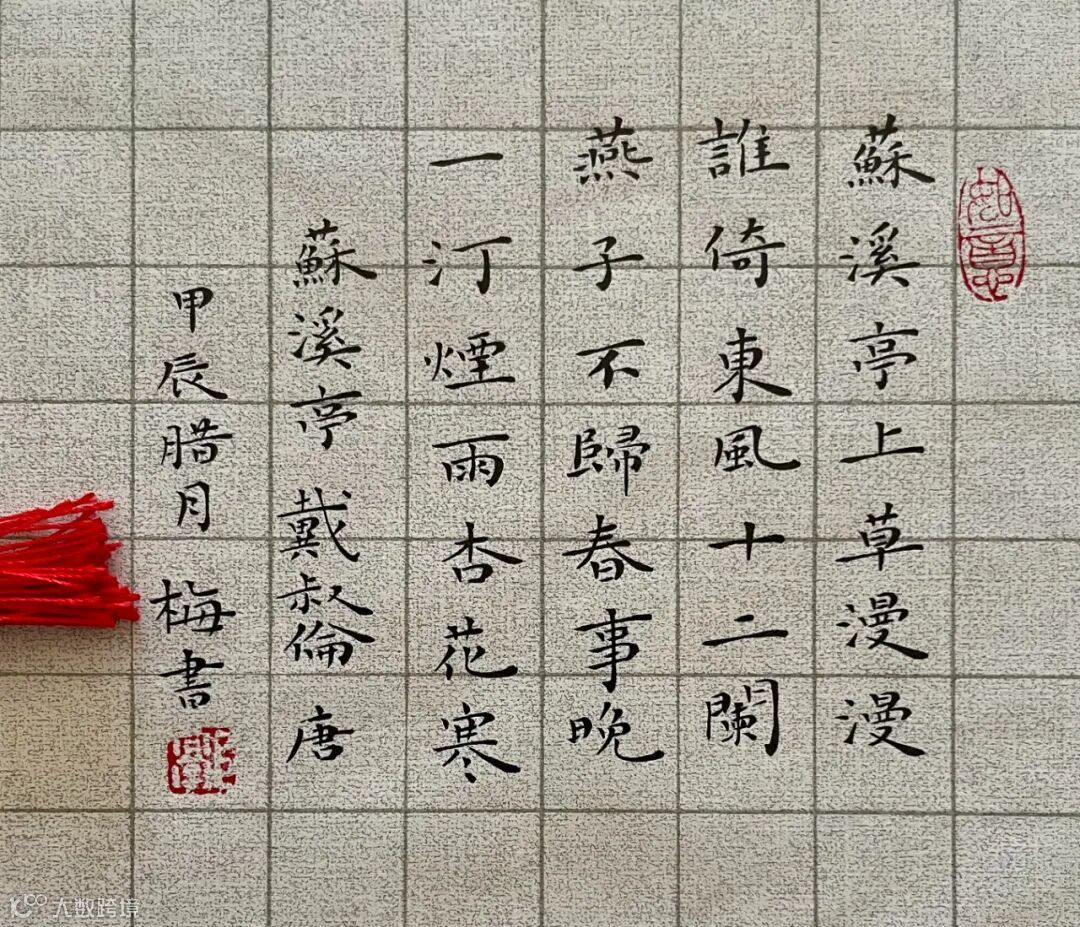 蘇溪亭上草漫漫
誰倚東風十二闌
燕子不歸春事晚
一汀煙雨杏花寒
蘇溪亭 戴叔倫 唐
甲辰腊月 梅書
大数跨境